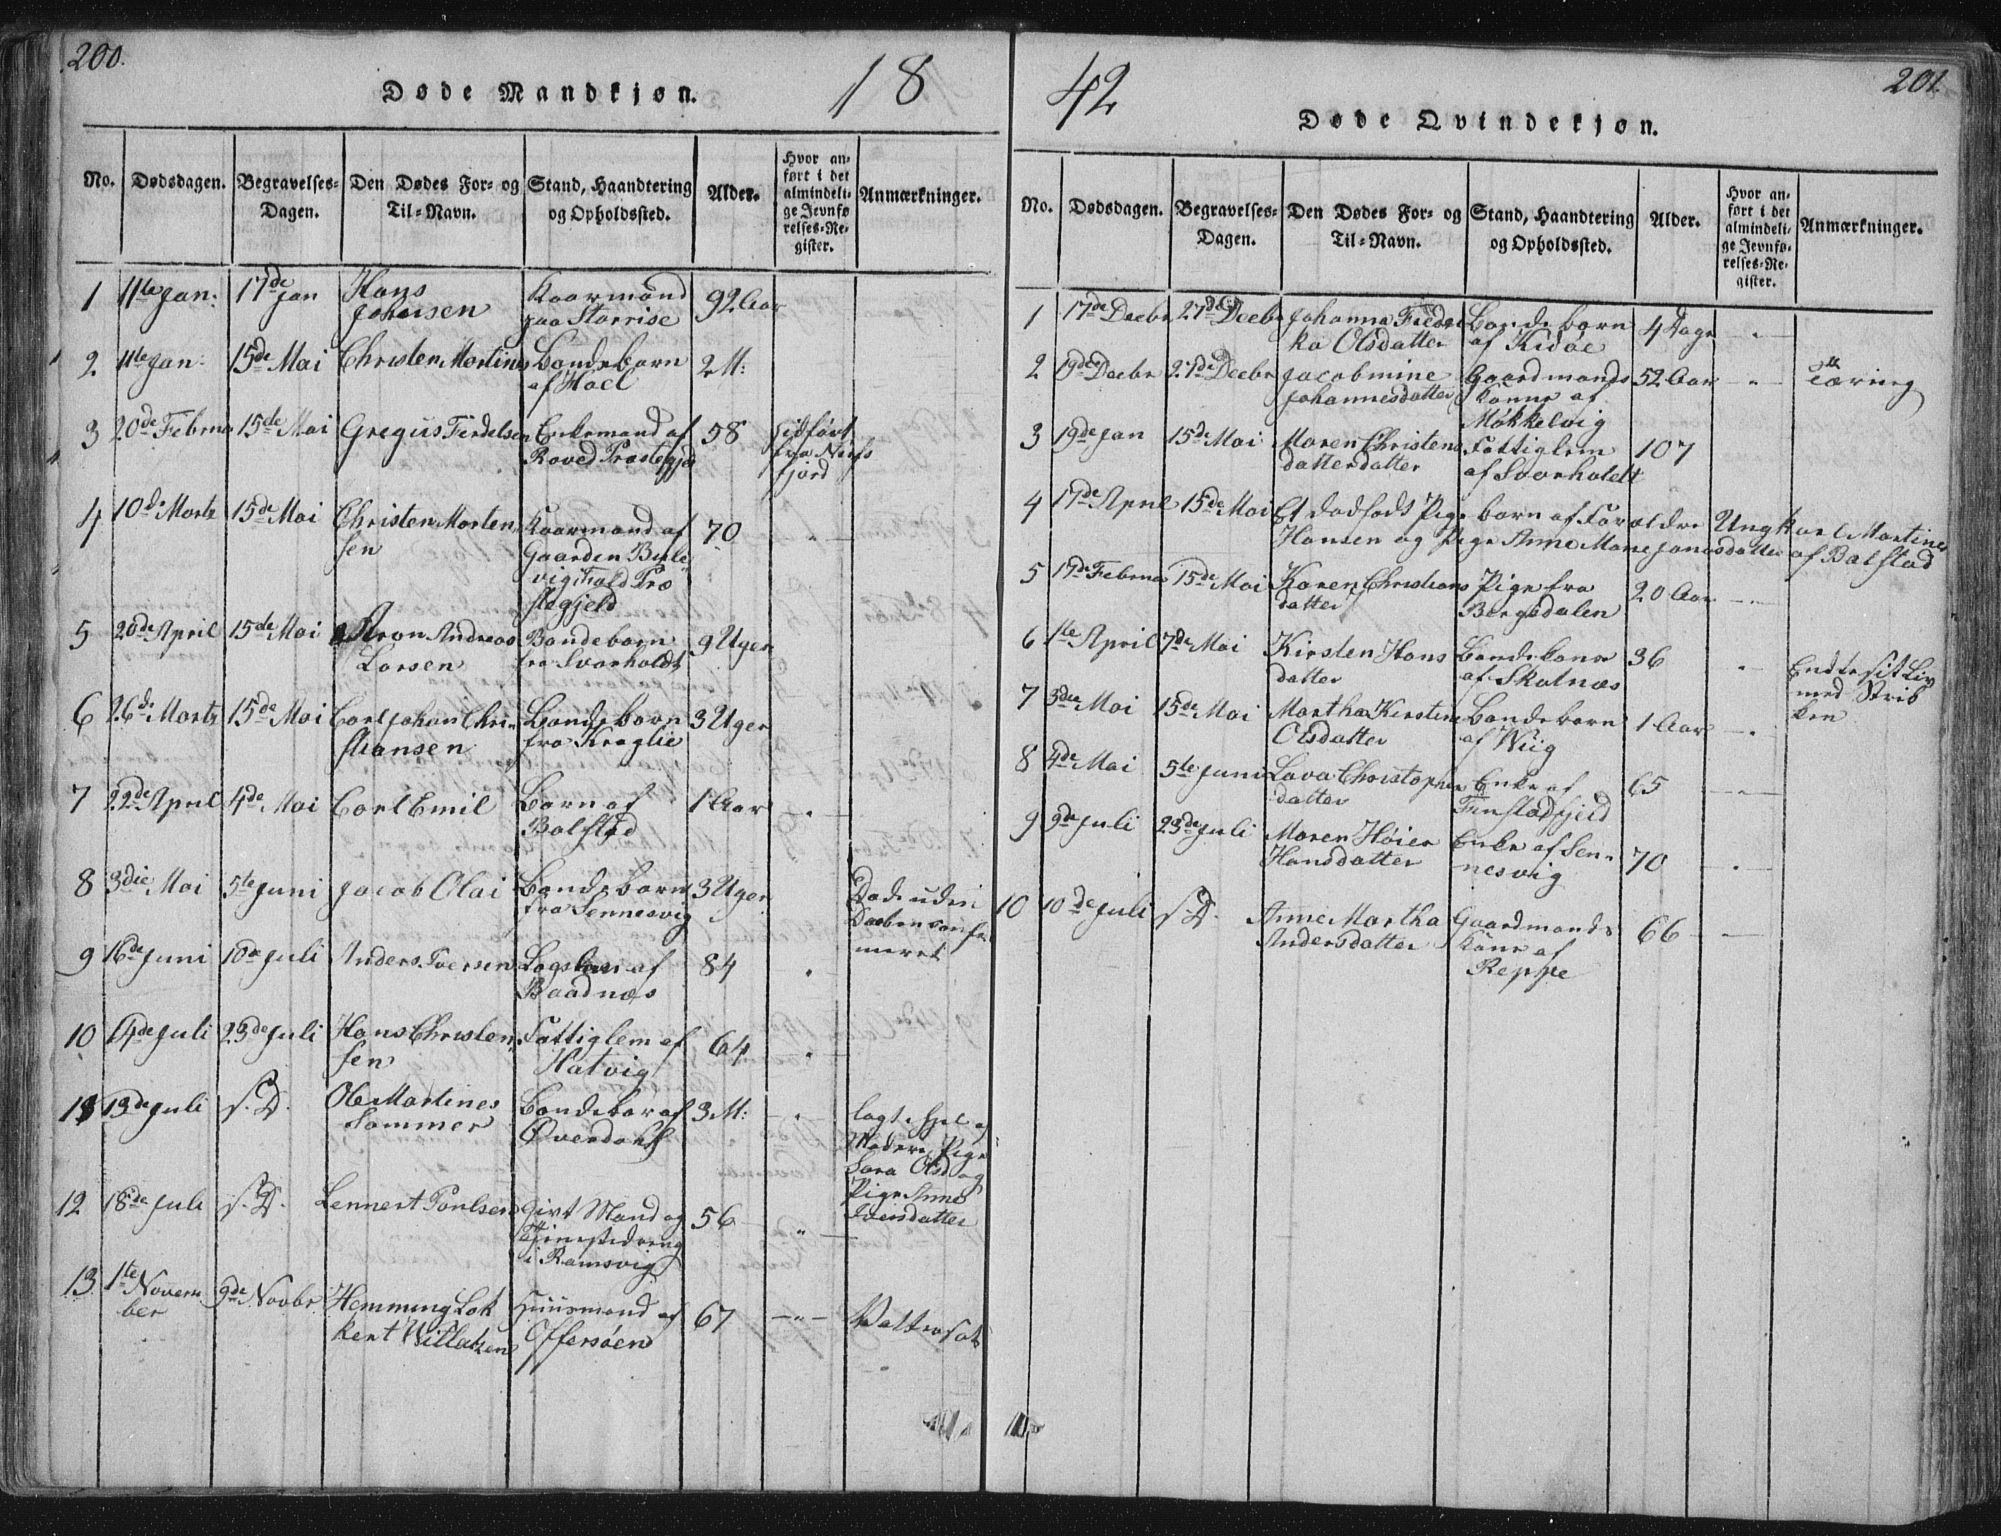 200.
18
Døde Mandkjøn.
No. Dødsdagen. Begravelses-Dagen. Den Dødes For- og Til-Navn. Stand, Haandtering og Opholdssted. Alder. Hvor anført i det almindelige Jevnførelses-Register. Anmærkninger.
1 11te Jan: 17de Jan Hans Johnsen Kaarmand paa Storrise 92 Aar
2 11te Jan: 15de Mai Christen Mortines Bondebarn af Hoel 2 M:
3 20de Februa 15de Mai Gregus Enkemand af Præstegjæ 58 fra
fjord
4 10de Marts 15de Mai Christen Mortensen Kaarmand af Gaarden Præstegjeld 70
5 20de April 15de Mai Aron Andreas Larsen Bondebarn fra Svarholdt 9 Uger
6 26de Marts 15de Mai Carl Johan Christiansen Bondebarn fra 3 Uger
7 22de April 4de Mai Carl Emil Barn af Balstad 1 Aar
8 3die Mai 5te Juni Jacob Olai Bondebarn fra Sennesvig 3 Uger Døde uden Daaben
9 16de Juni 10de Juli Anders Iversen Logslem af Baadnæs 84
10 14de Juli 23de Juli Hans Christensen Fattiglem af Hatvig 64
11 13de Juli s. D. Ole Martines Sommer Bondebar af 3 M: lagt
Pige
Sara Olsd og
Pige Anne
Iversdatter
12 18de Juli s. D. Lennert Poulsen Givt Mand og i Ramsvig 56
13 1te November 9de Novbr Hemming Huusmand af Offersøen 67
42
201.
Døde Qvindekjøn.
No. Dødsdagen. Begravelses-Dagen. Den Dødes For- og Til-Navn. Stand, Haandtering og Opholdssted. Alder. Hvor anført i det almindelige Jevnførelses-Register. Anmærkninger.
1 17de Decbr 27de Decbr Johanna Fredrika Olsdatter Bondebarn af 4 Dage
2 19de Decbr 27de Decbr Jacobmine Johannesdatter Gaardmands Kone af Møkkelvig 52 Aar Tæring
3 19de Jan 15de Mai Maren Christensdatterdatter Fattiglem af Svarholdt 107
4 17de April 15de Mai Et dødfødt Pigebarn af Forældre Ungkarl Martines
Hansen og Pige Anne Marie Jonasdatter af Balstad
5 17de Februa 15de Mai Karen Christiansdatter Pige fra Borgedalen 20 Aar
6 1te April 7de Mai Kirsten Hansdatter Bondekone af Skotnæs 36 Endte sit Liv
med Strikken
7 3die Mai 15de Mai Martha Kirstine Olsdatter Bondebarn af Wiig 1 Aar
8 4de Mai 5te Juni Lava Christophersdatter Enke af Finstadfjeld 65
9 9de Juli 23de Juli Maren Høier Hansdatter Enke af Sennesvig 70
10 10de Juli s. D. Anne Martha Andersdatter Gaardmands Kone af Reppe 66